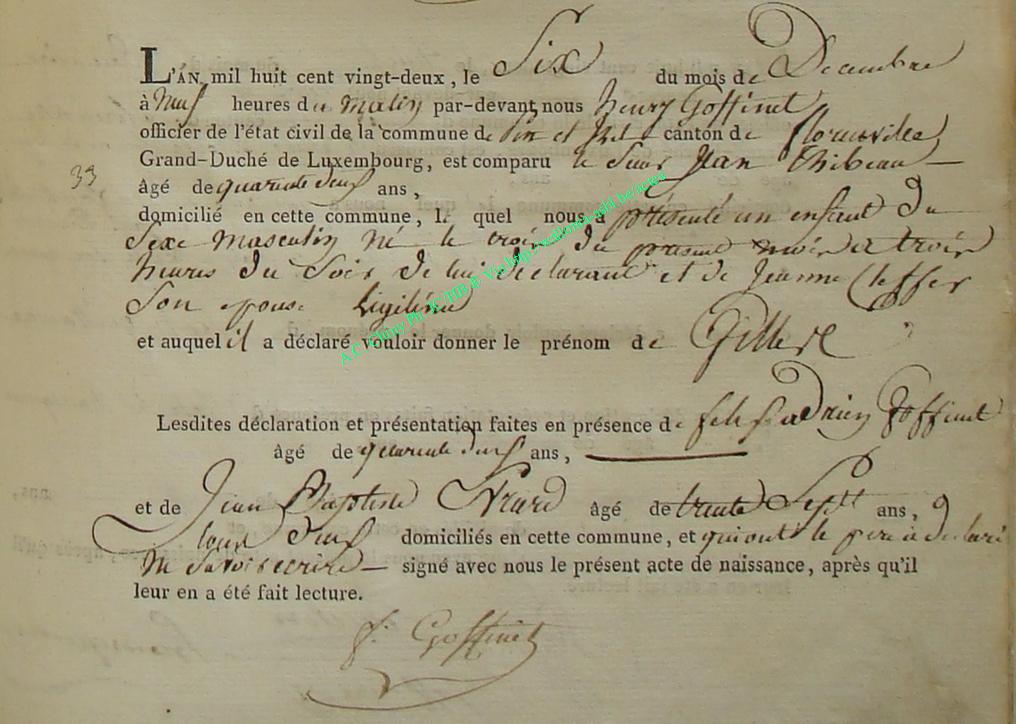 L'AN mil huit cent vingt-deux, le Six du mois de Decembre
à Neuf heures du Matin par-devant nous henry Goffinet
officier de l'état civil de la commune de canton de florenville
Grand-Duché de Luxembourg, est comparu le Sieur Jean Thibeau
33
âgé de quarente deux ans,
domicilié en cette commune, le quel nous a présenté un enfant du
Sexe Masculin né le trois du present mois a trois
heures du Soir de lui declarant et de Jeanne
Son epouse Legitime
et auquel il a déclaré vouloir donner le prénom de
Lesdites déclaration et présentation faites en présence de adrien Goffinet
âgé de quarente deux ans,
et de Jean Baptiste âgé de trente Sept ans,
tous deux domiciliés en cette commune, et qui ont le pere a declaré
ne Savoir ecrire signé avec nous le présent acte de naissance, après qu'il
leur en a été fait lecture.
Goffinet